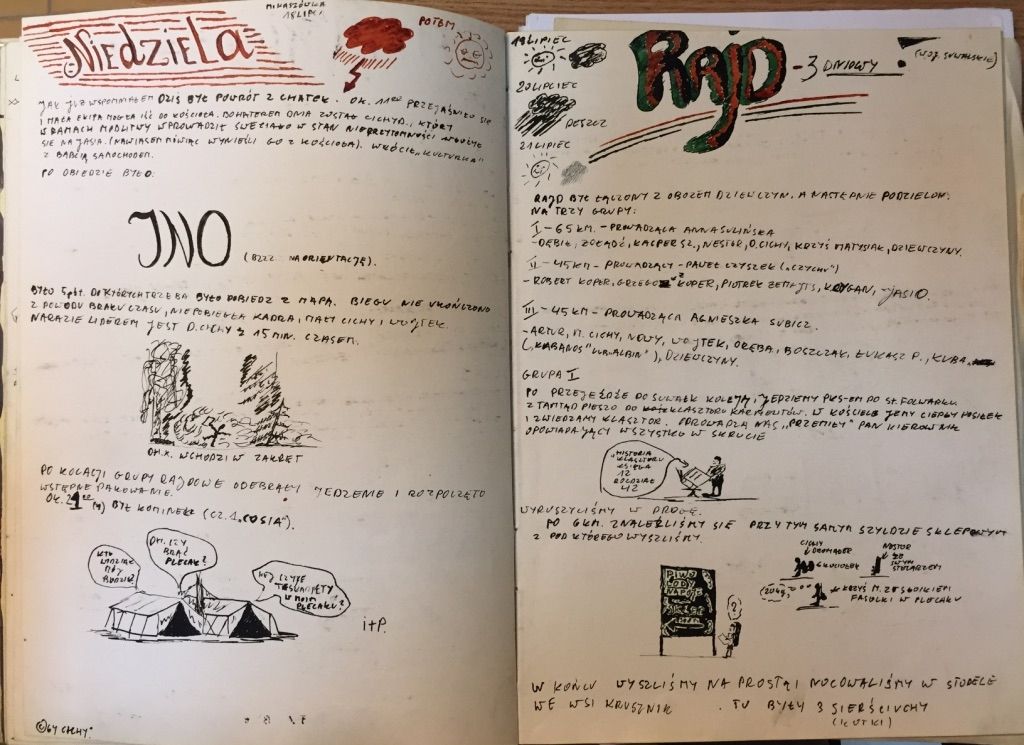 MIKASZÓWKA
18 LIPCA
POTEM
NIEDZIELA
JAK JUŻ WSPOMNIAŁEM DZIŚ BYŁ POWRÓT Z CHATEK. OK. 11 00 PRZEJAŚNIŁO SIĘ
I MAŁA EKIPA MOGŁA IŚĆ DO KOŚCIOŁA. BOHATEREM DNIA ZOSTAŁ CICHY D., KTÓRY
W RAMACH MODLITWY WPROWADZIŁ SWE CIAŁO W STAN NIEPRZYTOMNOŚCI
SIĘ NA JASIA. (NAWIASEM MÓWIĄC WYNIEŚLI GO Z KOŚCIOŁA). "KULTURKA"
Z BABCIĄ SAMOCHODEM.
PO OBIEDZIE BYŁO:
JNO
(BZZZ NA ORIENTACJĘ).
BYŁO 5 pkt. DO KTÓRYCH TRZEBA BYŁO DOBIEDZ Z MAPĄ. BIEGU NIE UKOŃCZONO
Z POWODU BRAKU CZASU, NIE POBIEGŁA KADRA, MAŁY CICHY I WOJTEK.
NARAZIE LIDEREM JEST D. CICHY Z 15 MIN. CZASEM.
DH. X. WCHODZI W ZAKRĘT
PO KOLACJI GRUPY RAJDOWE ODEBRAŁY JEDZENIE I ROZPOCZĘTO
WSTĘPNE PAKOWANIE.
OK. 21 00 (?) BYŁ KOMINEK (CZ. 1 "COSIA").
KTO WIDZIAŁ MÓJ BUDZIK?
DH. CZY BRAĆ PLECAK?
HEJ CZYJE TE SKARPETY W MOIM PLECAKU?
itP.
© BY CICHY.
19 LIPIEC
20 LIPIEC
DESZCZ
21 LIPIEC
RAJD - 3 DNIOWY !
(WOJ. SUWALSKIE)
RAJD BYŁ ŁĄCZONY Z OBOZEM DZIEWCZYN. A NASTĘPNIE PODZIELONY
NA TRZY GRUPY:
I - 65 KM. - PROWADZĄCA ANNA SULIŃSKA
- DĘBIL, ŻOŁĄDŹ, KACPER SZ., NESTOR, D. CICHY, KRZYŚ MATYSIAK, DZIEWCZYNY.
II - 45 KM - PROWADZĄCY - PAWEŁ CZYSZEK ("CZYCHU")
- ROBERT KOPER, GRZEGORZ KOPER, PIOTREK ZEMAJTIS, KRYGAN, JASIO.
III - 45 KM - PROWADZĄCA AGNIESZKA SUBICZ.
- ARTUR, M. CICHY, NOWY, WOJTEK, ORĘBA, BOSZCZAK, ŁUKASZ P., KUBA
("KABANOS" ), DZIEWCZYNY.
GRUPA I
PO PRZEJEŹDZIE DO SUWAŁK KOLEJĄ, JEDZIEMY PKS-EM DO ST. FOLWARKU
Z TAMTĄD PIESZO DO KLASZTORU KAMEDUŁÓW. W KOŚCIELE JEMY CIEPŁY POSIŁEK
I ZWIEDZAMY KLASZTOR. OPROWADZA NAS "PRZEMIŁY" PAN KIEROWNIK
OPOWIADAJĄCY WSZYSTKO W SKRUCIE
"HISTORIA KLASZTORU KSIĘGA 12 ROZDZIAŁ 42
WYRUSZYLIŚMY W DROGĘ.
PO 6 KM. ZNALEŹLIŚMY SIĘ PRZY TYM SAMYM SZYLDZIE SKLEPOWYM
Z POD KTÓREGO WYSZLIŚMY.
PIWO
LODY
NAPOJE
SKLEP
?
CICHY
DROMADER
NESTOR
ZE
SWYM
STOLARZEM
KRZYŚ M. ZE SŁOIKIEM
FASOLKI W PLECAKU
W KOŃCU WYSZLIŚMY NA PROSTĄ I NOCOWALIŚMY W STODOLE
WE WSI KRUSZNIK. TU BYŁY 3 SIERŚCIUCHY
(KOTKI)